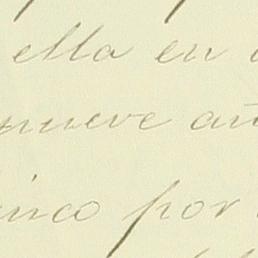 ella en
nueve añ
inco por